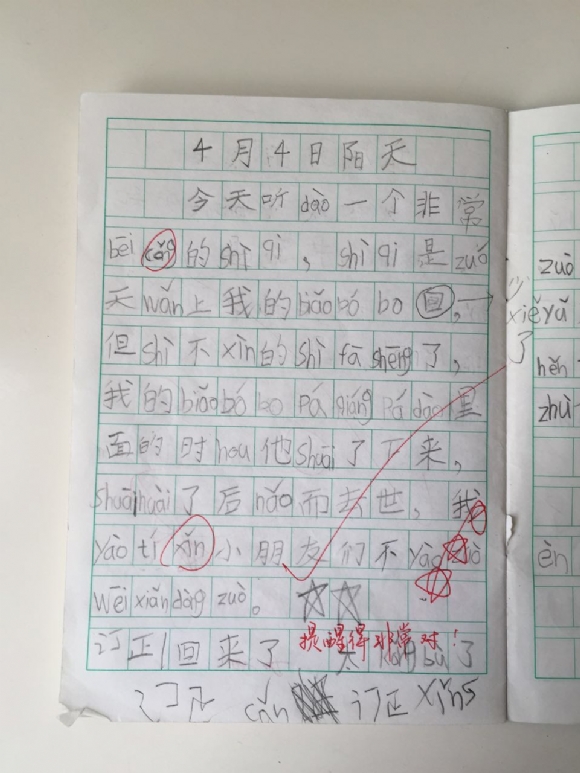 4月4日阳天
今天听dào一个非常
bēi cǎng的shì qi，shì qi是zuó
天wǎn上我的biǎo bó bo回，
但shì不xìn的shì fā shēng了，
我的biǎo bó bo pá qiáng pá dào里
面的时hou他shuāi了下来，
shuāi huài了后nǎo而去世，我
yào tí xǐn小朋友们不yào zuò
wēi xiǎn dòng zuò。
订正回来了
提醒得非常对！
订正 cǎn 订正 xǐng
少
xiě yǔ
了
zuò
hěn
zhù
èn